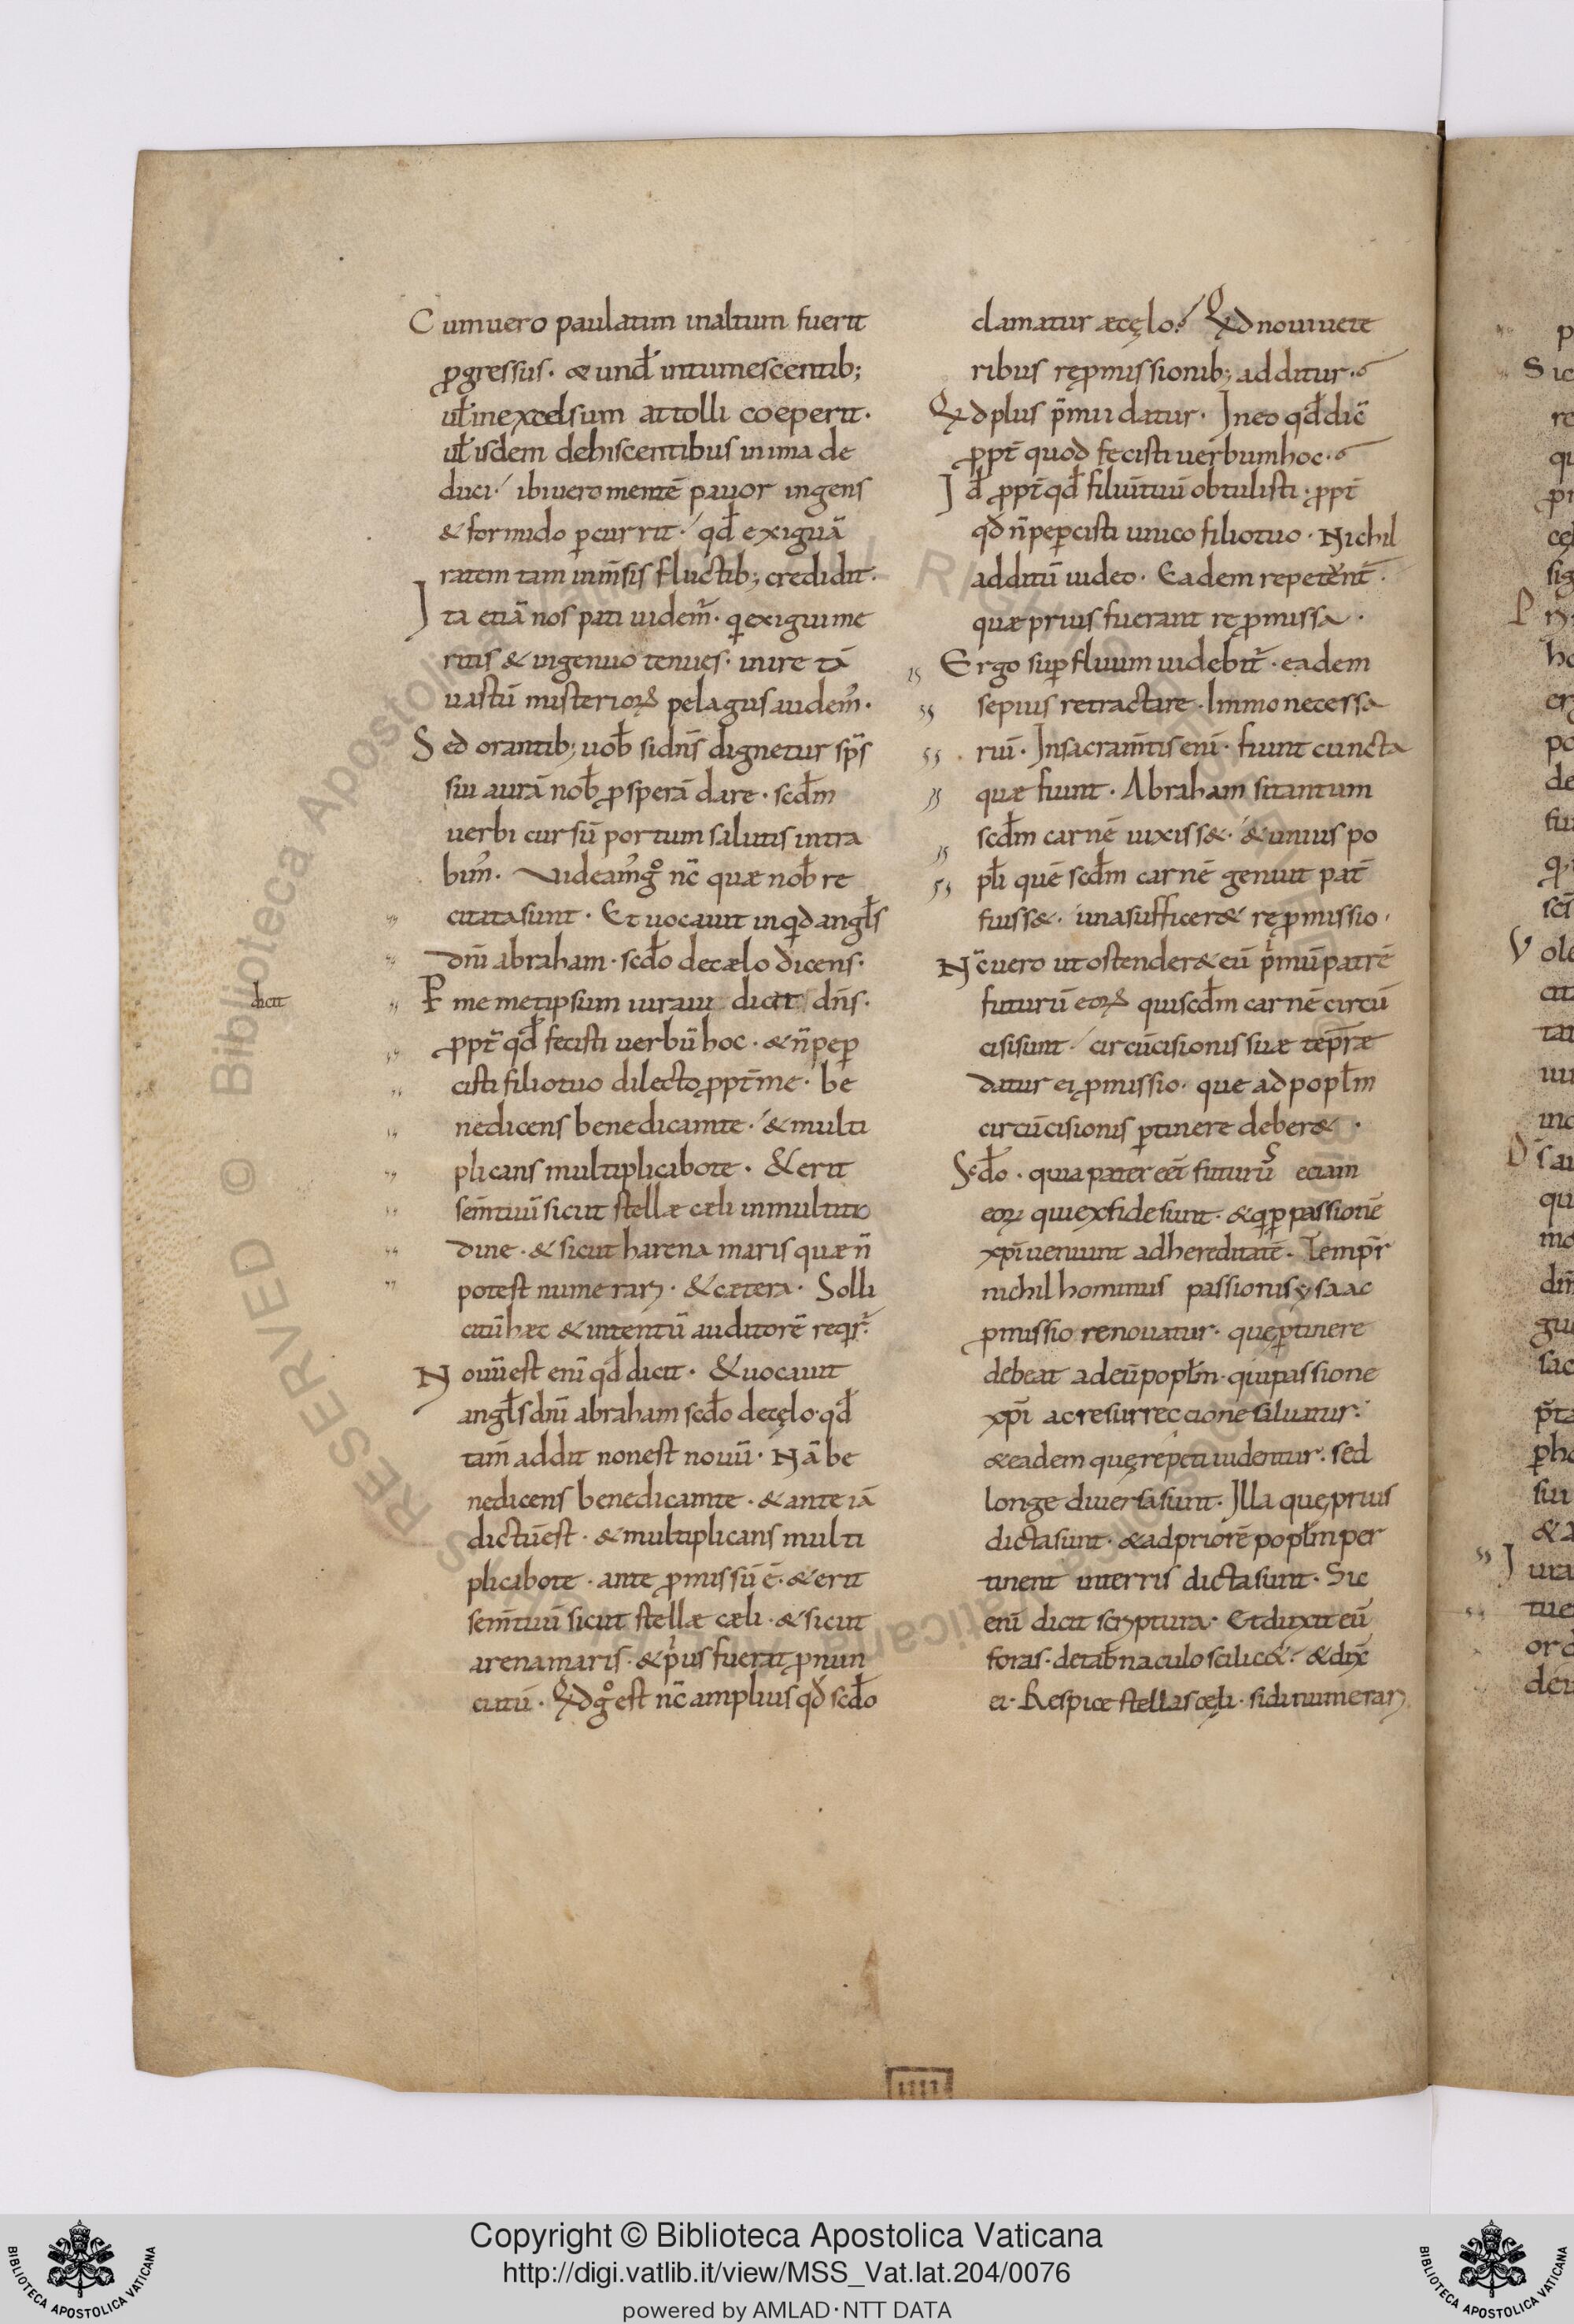 Cum uero paulatim in altum fuerit
ꝓgressus· & und̵ intumescentib;
ul̵ in excelsum attolli coeperit·
ul̵ isdem dehiscentibus in ima de
duci· ibi uero mentē pauor ingens
& formido ꝑcurrit· qd̵ exiguā
ratem tam inm̄sis fluctib; credidit·
Ita etiā nos pati uidem̄· qui exigui me
ritis & ingenuo tenues· inire tā
uastū misterioꝝ pelagus audem̄·
Sed orantib; uob̵ si dn̄s dignetur sp̄s
sui aurā nob̵ ꝓsperā dare· scd̵m
uerbi cursū portum salutis intra
bim̄· Videam̄ g̊ nc̄ quæ nob̵ re
citata sunt· Et uocauit inqd angl̵s
dn̄i abraham· scd̵o de cælo dicens·
dicit
P me metipsum iuraui dicit dn̄s·
ꝓpt̄ qd̵ fecisti uerbū hoc· & n̄ peꝑ
cisti filio tuo dilecto ꝓpt̄ me· be
nedicens benedicam te· & multi
plicans multiplicabo te· & erit
sem̄ tuū sicut stellæ cæli in multitu
dine· & sicut harena maris quæ n̄
potest numerari· & cætera· Solli
citū hæc & intentū auditorē reqr̄·
Nouū est enī qd̵ dicit· & uocauit
angl̵s dn̄i abraham scd̵o de cęlo· qd̵
tam̄ addit non est nouū· Nā be
nedicens benedicam te· & ante iā
dictū est· & multiplicans multi
plicabo te· ante ꝓmissū ē· & erit
sem̄ tuū sicut stellæ cæli· & sicut
arena maris· & p'us fuerat ꝓnun
ciatū· Qd g̊ est nc̄ amplius qd̵ scd̵o
clamatur e cęlo· Qd noui uete
ribus reꝓmissionib; additur·
Qd plus p̄mii datur· In eo qd̵ dic̄
ꝓpt̄ quod fecisti uerbum hoc·
Id̵ ꝓpt̄ qd̵ filiū tuū obtulisti· ꝓpt̄
qd̵ n̄ peꝑcisti unico filio tuo· Nichil
additū uideo· Eadem repetent̄·
quæ prius fuerant reꝓmissa·
Ergo suꝑfluum uidebit̄· eadem
sepius retractare· Immo necessa
riū· In sacram̄tis enī· fiunt cuncta
quæ fiunt· Abraham si tantum
scd̵m carnē uixiss&· & unius po
pl̵i quē scd̵m carnē genuit pat̄
fuiss&· una suffícer& reꝓmissio·
Nc̄ uero ut ostender& eū p'mū patrē
futurū eoꝝ qui scd̵m carnē circū
cisi sunt· circūcisionis suæ tēpr̄æ
datur ei ꝓmissio· que ad popl̵m
circūcisionis ꝑtinere deber&·
Scd̵o· quia pater eēt futurus etiam
eoꝝ qui ex fide sunt· & q ꝑ passionē
xp̄i ueniunt ad hereditatē· Tempr̄
nichilhominus passionis ysaac
ꝓmissio renouatur· que ꝑtinere
debeat ad eū popl̵m· qui passione
xp̄i ac resurreccione saluatur·
& eadem quę repeti uidentur· sed
longe diuersa sunt· Illa quę prius
dicta sunt· & ad priorē popl̵m per
tinent in terris dicta sunt· Sic
enī dicit scriptura· Et duxit eū
foras· de tab̵naculo scilic&· & dix̄
ei· Respice stellas cęli· si dinumerari
IIII
Copyright © Biblioteca Apostolica Vaticana
http://digi.vatlib.it/view/MSS_Vat.lat.204/0076
powered by AMLAD·NTT DATA